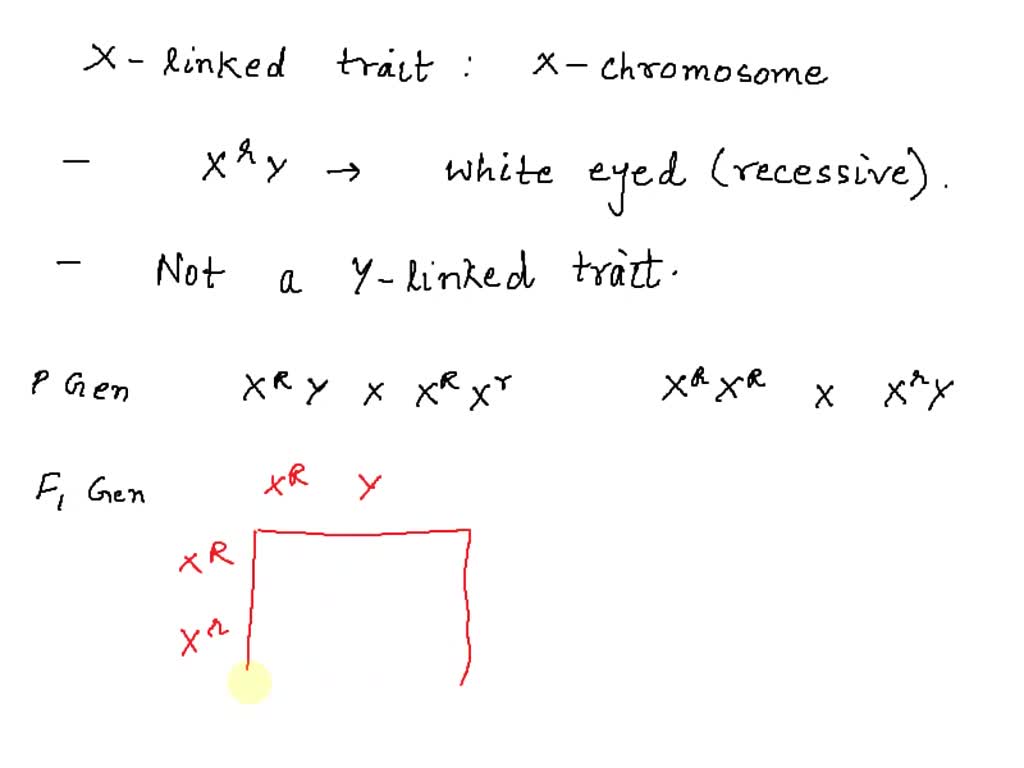 X - linked trait : X - chromosome
- XʳY → white eyed (recessive).
- Not a Y-linked trait.
P Gen Xᴿ Y x Xᴿ Xʳ XᴿXᴿ x XʳY
F₁ Gen Xᴿ Y
Xᴿ
Xʳ